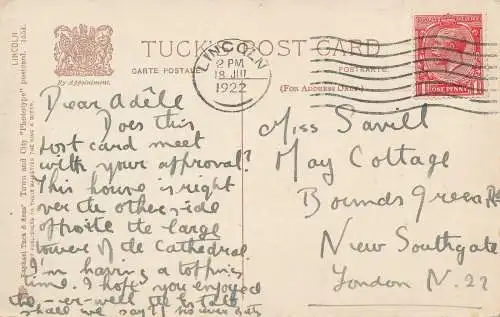 TUCK'S POST CARD
CARTE POSTALE
POSTKARTE
(FOR ADDRESS ONLY.)
By Appointment.
LINCOLN
2 PM
18 JUL
1922
ONE PENNY
LINCOLN.
Raphael Tuck & Sons' Town and City "Phototype" postcard.
Dear Adèle
Does this
post card meet
with your approval?
This house is right
over the other side
opposite the large
tower of the Cathedral.
I'm having a topping
time. I hope you enjoyed
the - er - well to talk
shall we say it
Miss Savill
May Cottage
Bounds Green Rd
New Southgate
London N. 22